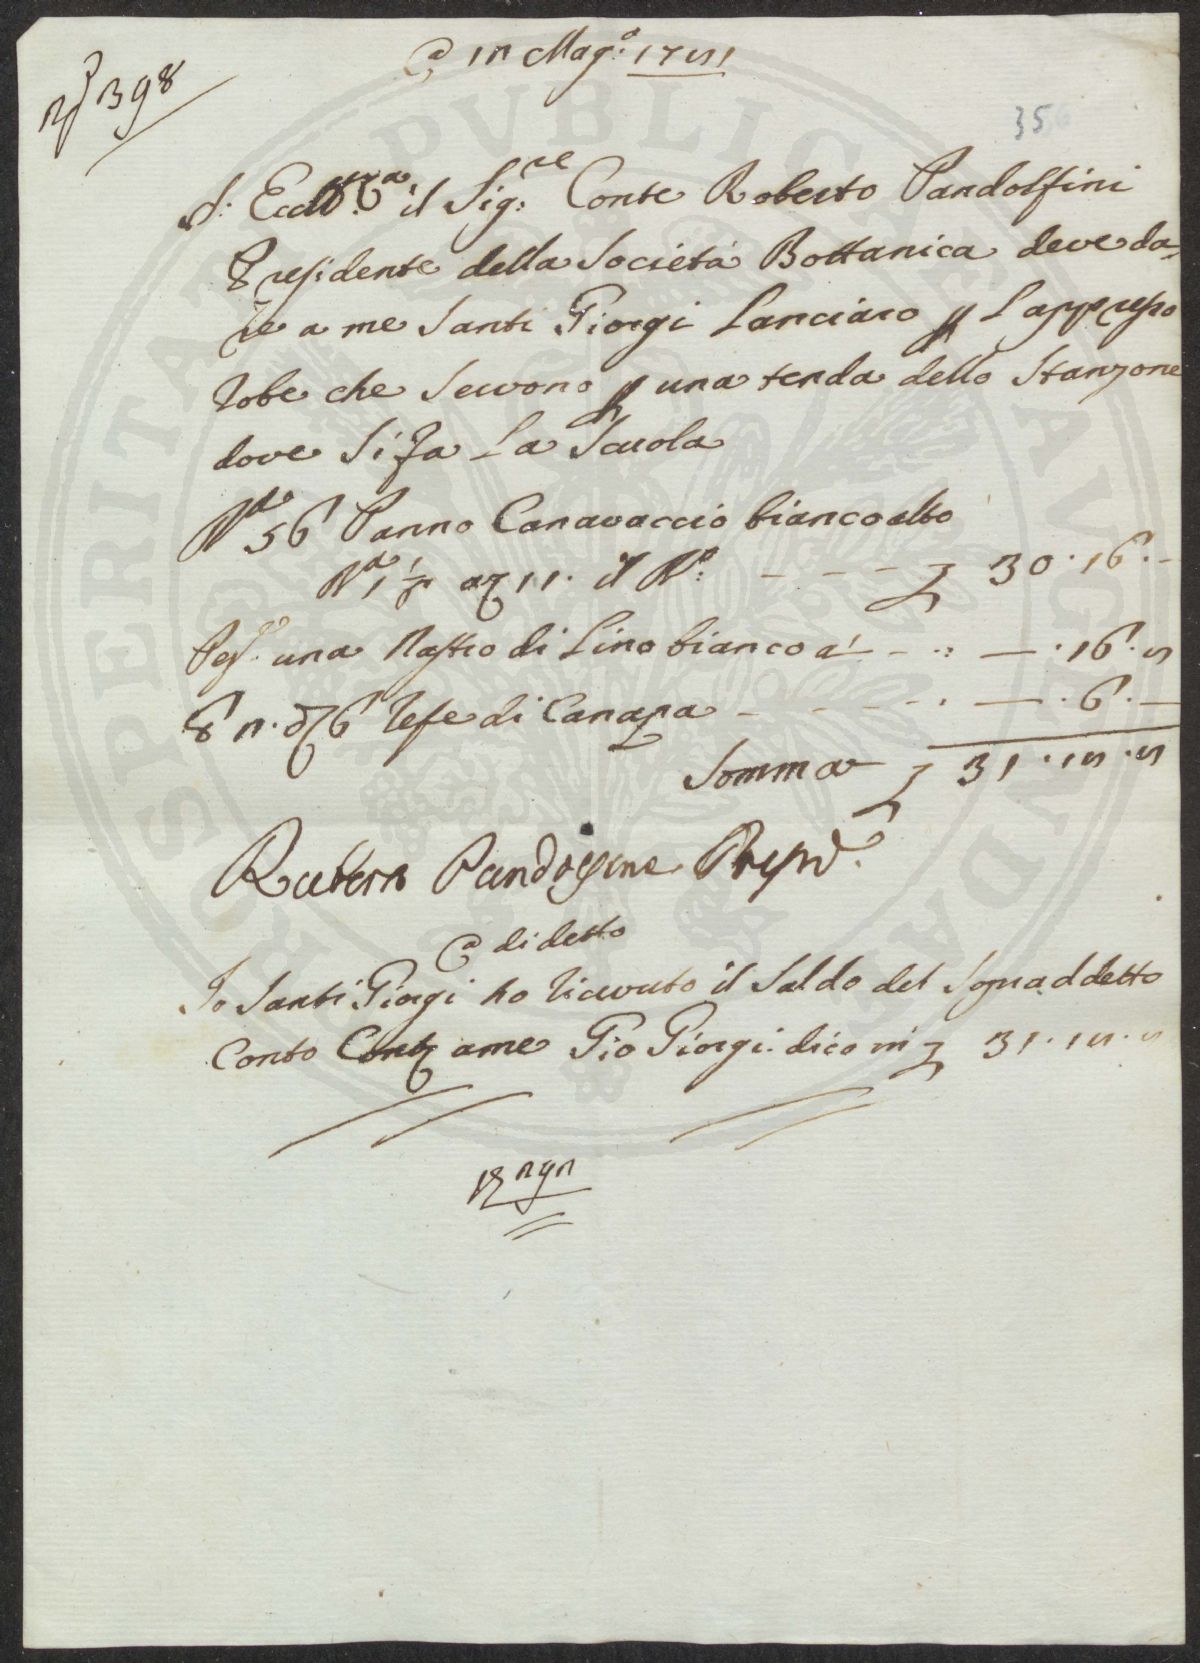 N° 398
A di 15 Mag.° 1751
356
S: Ecc.za il Sig:re Conte Roberto Pandolfini
Presidente della Società Bottanica deve da-
re a me Santi Giorgi Lanciaro p Lappresso
Robe che Servono p una tenda dello Stanzone
dove Si fa La Scuola
B.a 56 Panno Canavaccio bianco alto
B.a 1 11. il B.°: - - - £ 30.16.-
Pez.° una Nastro di Lino bianco a - - -.16.5
6 Refe di Canapa - - - - -.6.-
Somma £ 31.18.5
Ruberto Pandolfini Presid.e
A di detto
Io Santi Giorgi ho Ricevuto il Saldo del Sopraddetto
Conto Cont a me Gio Giorgi dico £ 31.18.5
PROSPERITATI PVBLICAE AVGENDAE